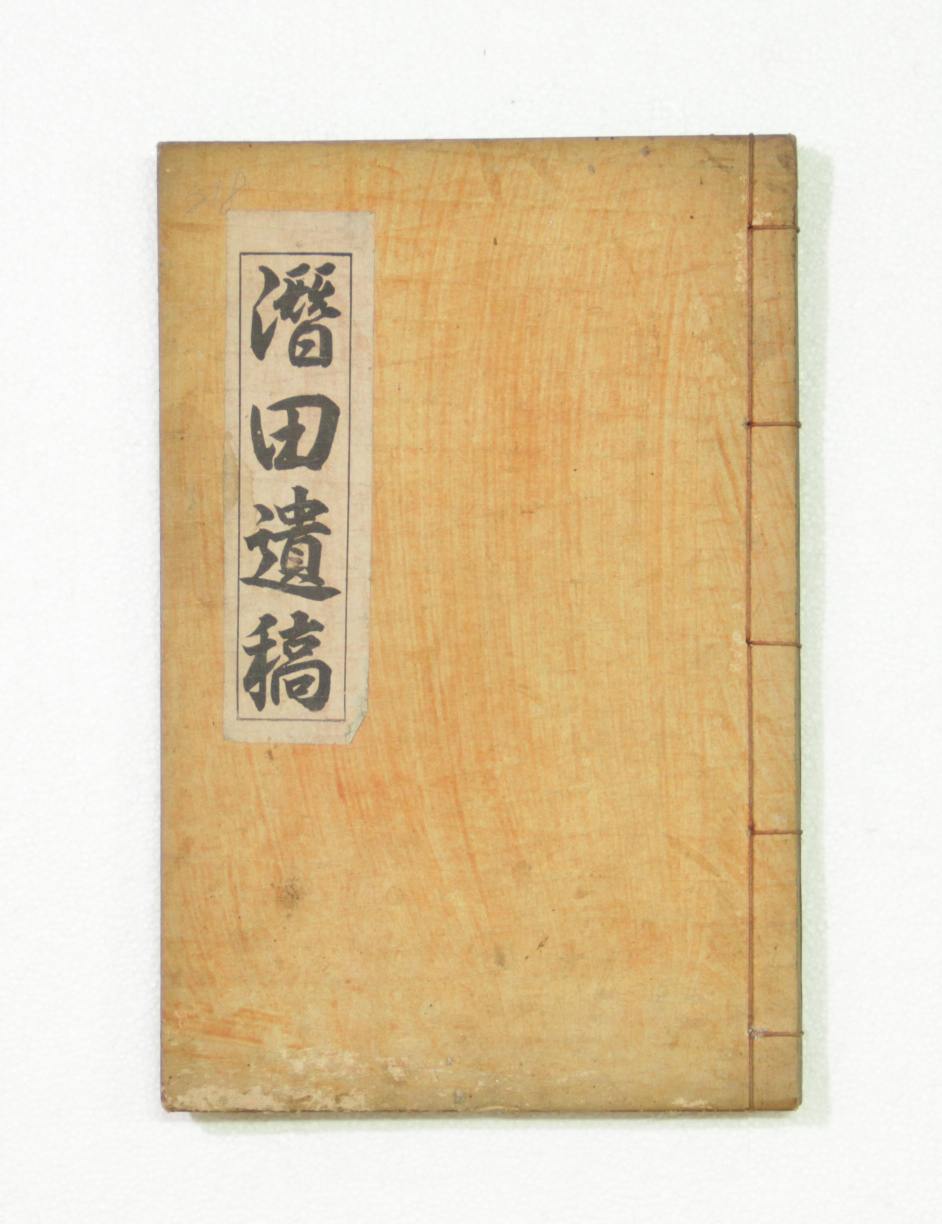 潛田遺稿